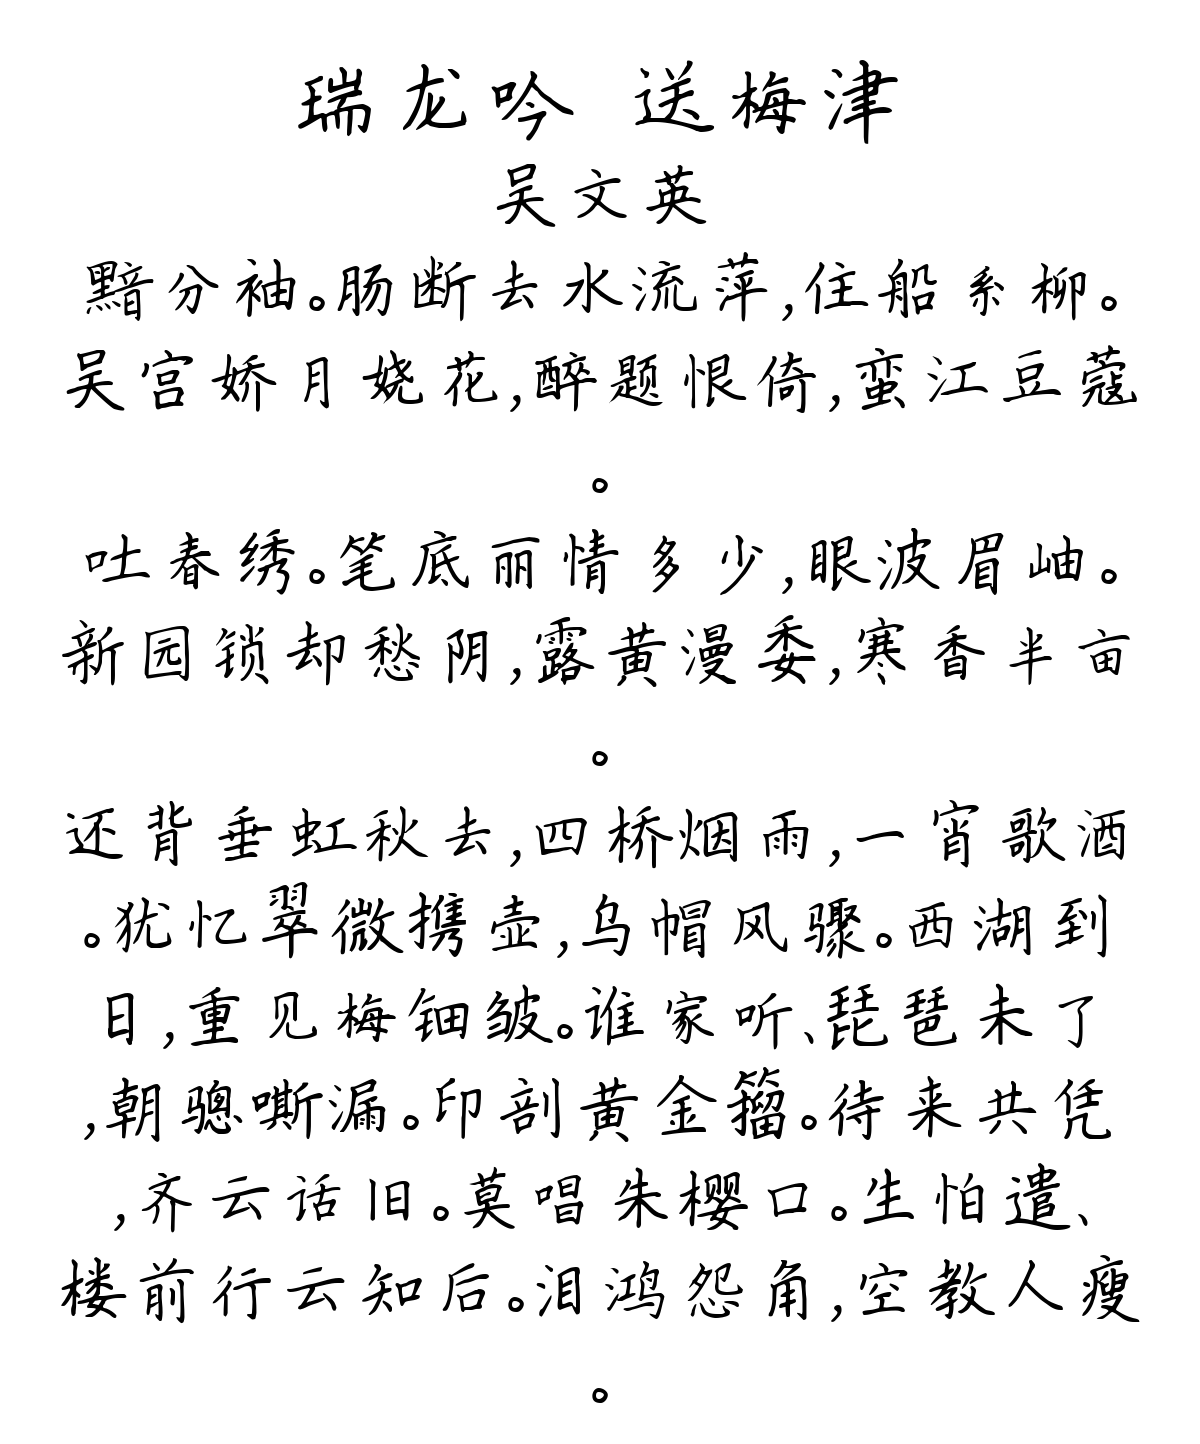 瑞龙吟 送梅津
吴文英
黯分袖。肠断去水流萍,住船系柳。
吴宫娇月娆花,醉题恨倚,蛮江豆蔻
。
吐春绣。笔底丽情多少,眼波眉岫。
新园锁却愁阴,露黄漫委,寒香半亩
。
还背垂虹秋去,四桥烟雨,一宵歌酒
。犹忆翠微携壶,乌帽风骤。西湖到
日,重见梅钿皱。谁家听、琵琶未了
,朝骢嘶漏。印剖黄金籀。待来共凭
,齐云话旧。莫唱朱樱口。生怕遣、
楼前行云知后。泪鸿怨角,空教人瘦
。